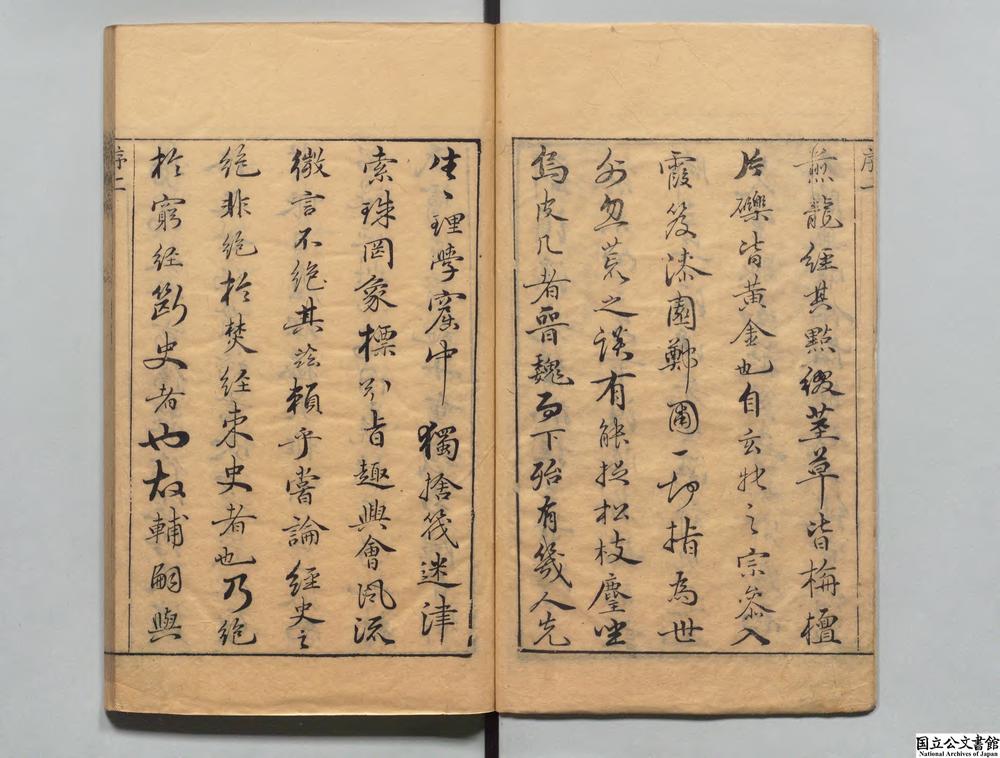 序一
龍經其點綴莖草皆栴檀
片礫皆黃金也自玄牝之宗參入
霞笈漆園鄭圃一切指為世
外忽荒之談有能捉松枝麈坐
烏皮几者晉魏而下殆有幾人先
生〻理學窟中獨捨筏迷津
索珠罔象標引旨趣興會風流
微言不絕其茲賴乎嘗論經史之
絕非絕於焚經束史者也乃絕
於窮經斷史者也故輔嗣與
序二
国立公文書館
National Archives of Japan